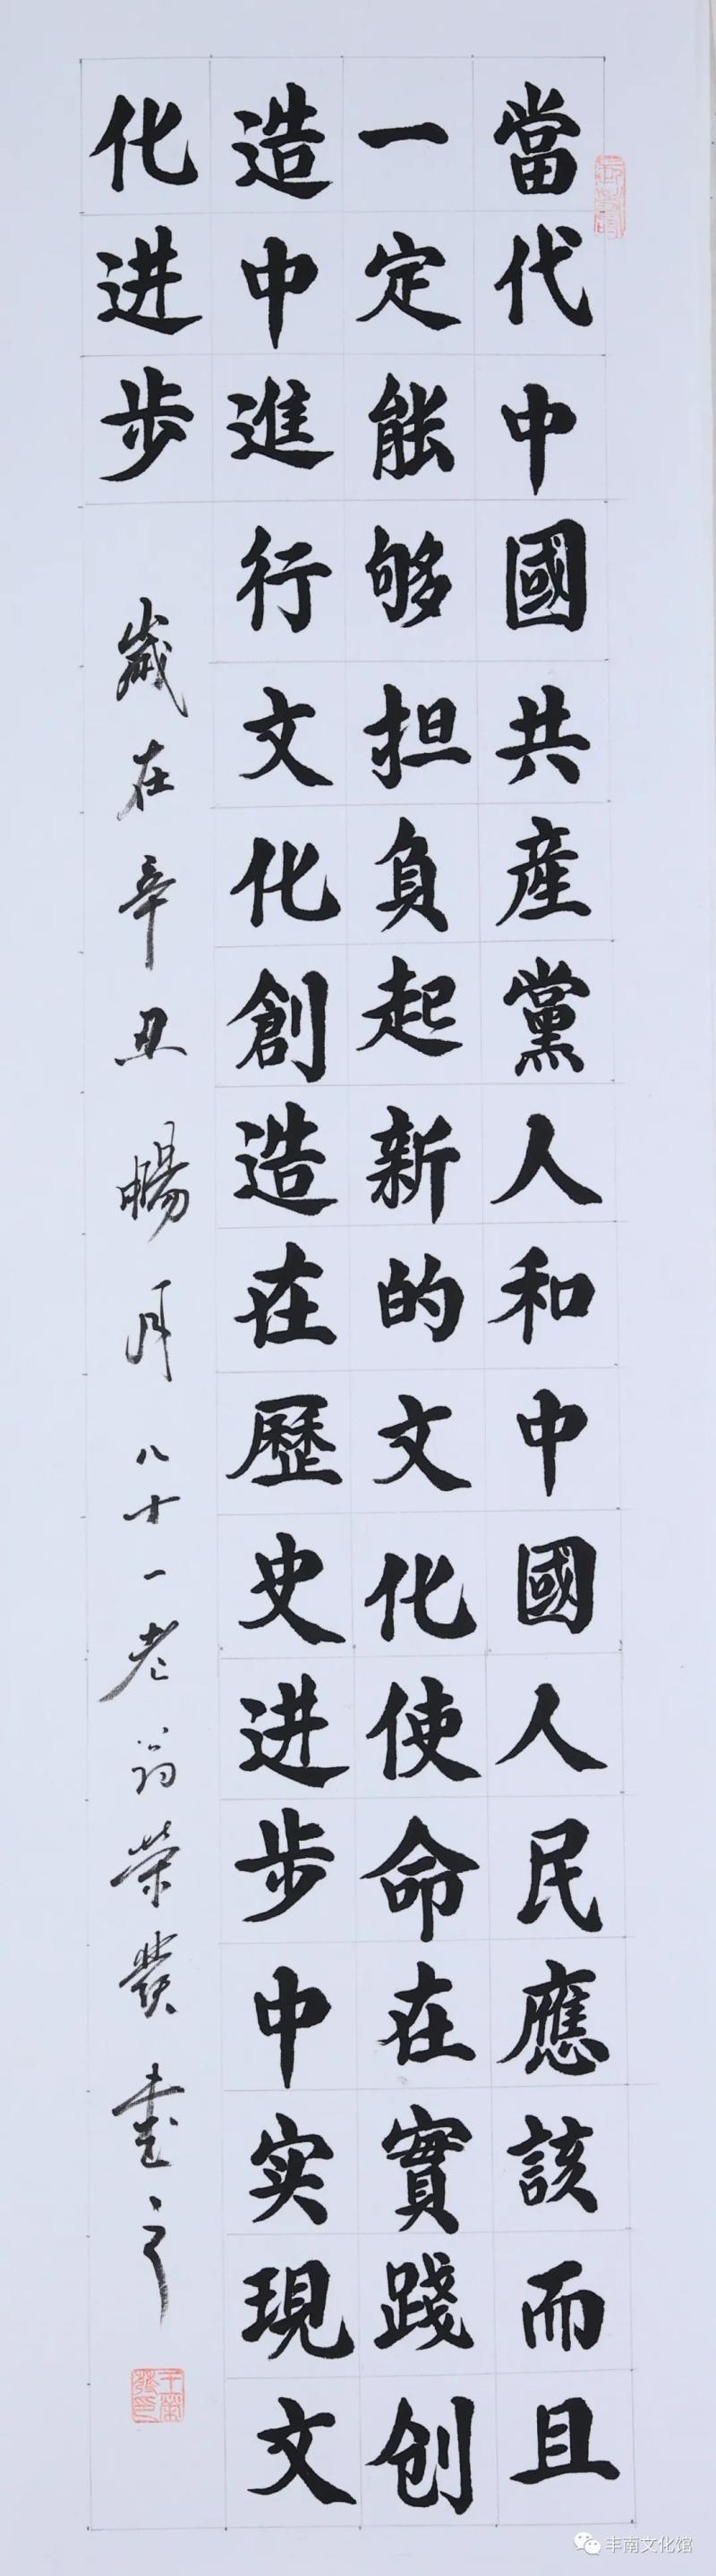 當代中國共産黨人和中國人民應該而且
一定能够担負起新的文化使命在實踐创
造中進行文化創造在歷史进步中实現文
化进步
歲在辛丑暢月八十一老翁荣發書之
丰南文化馆